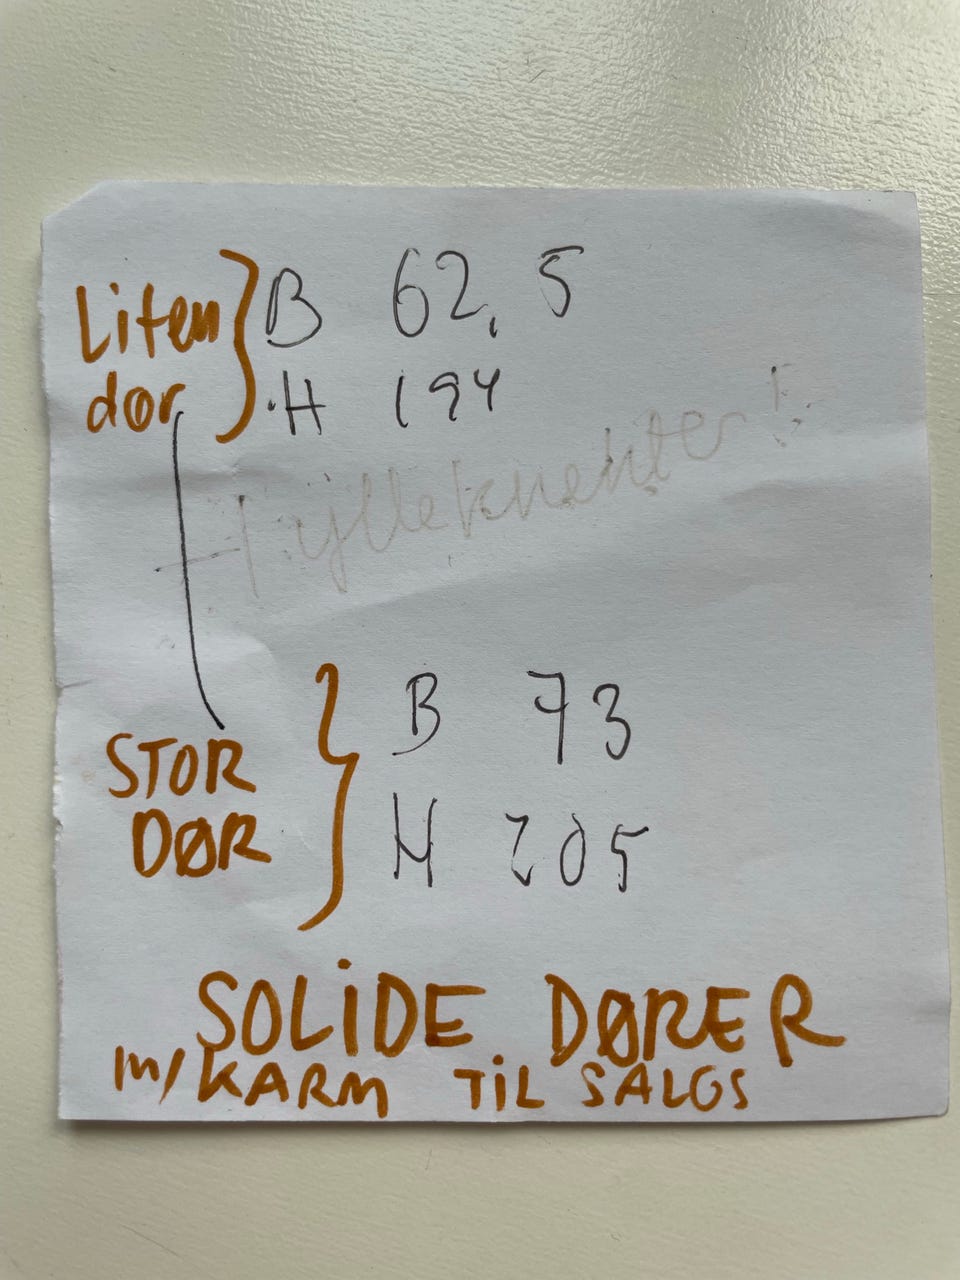 Liten } B 62,5
dør } H 194
Hylleknekter!
STOR } B 73
DØR } H 205
SOLiDE DØRER
m/KARM TiL SALGS